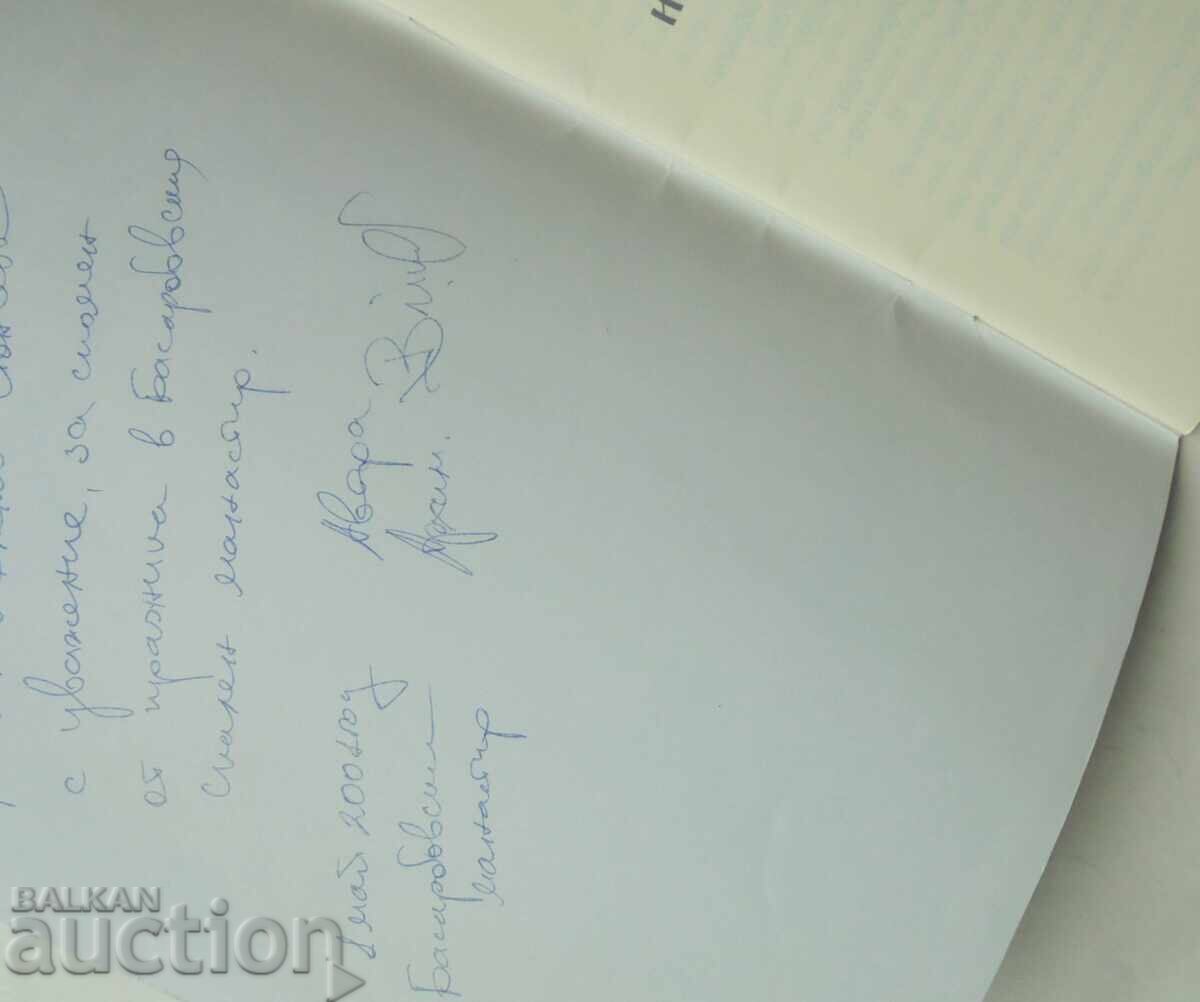 с уважение, за спомен
от празника в Басарбовския
скален манастир.
май 2001 год
Автора
Басарбовски
манастир
Архим.
Н
BALKAN
auction